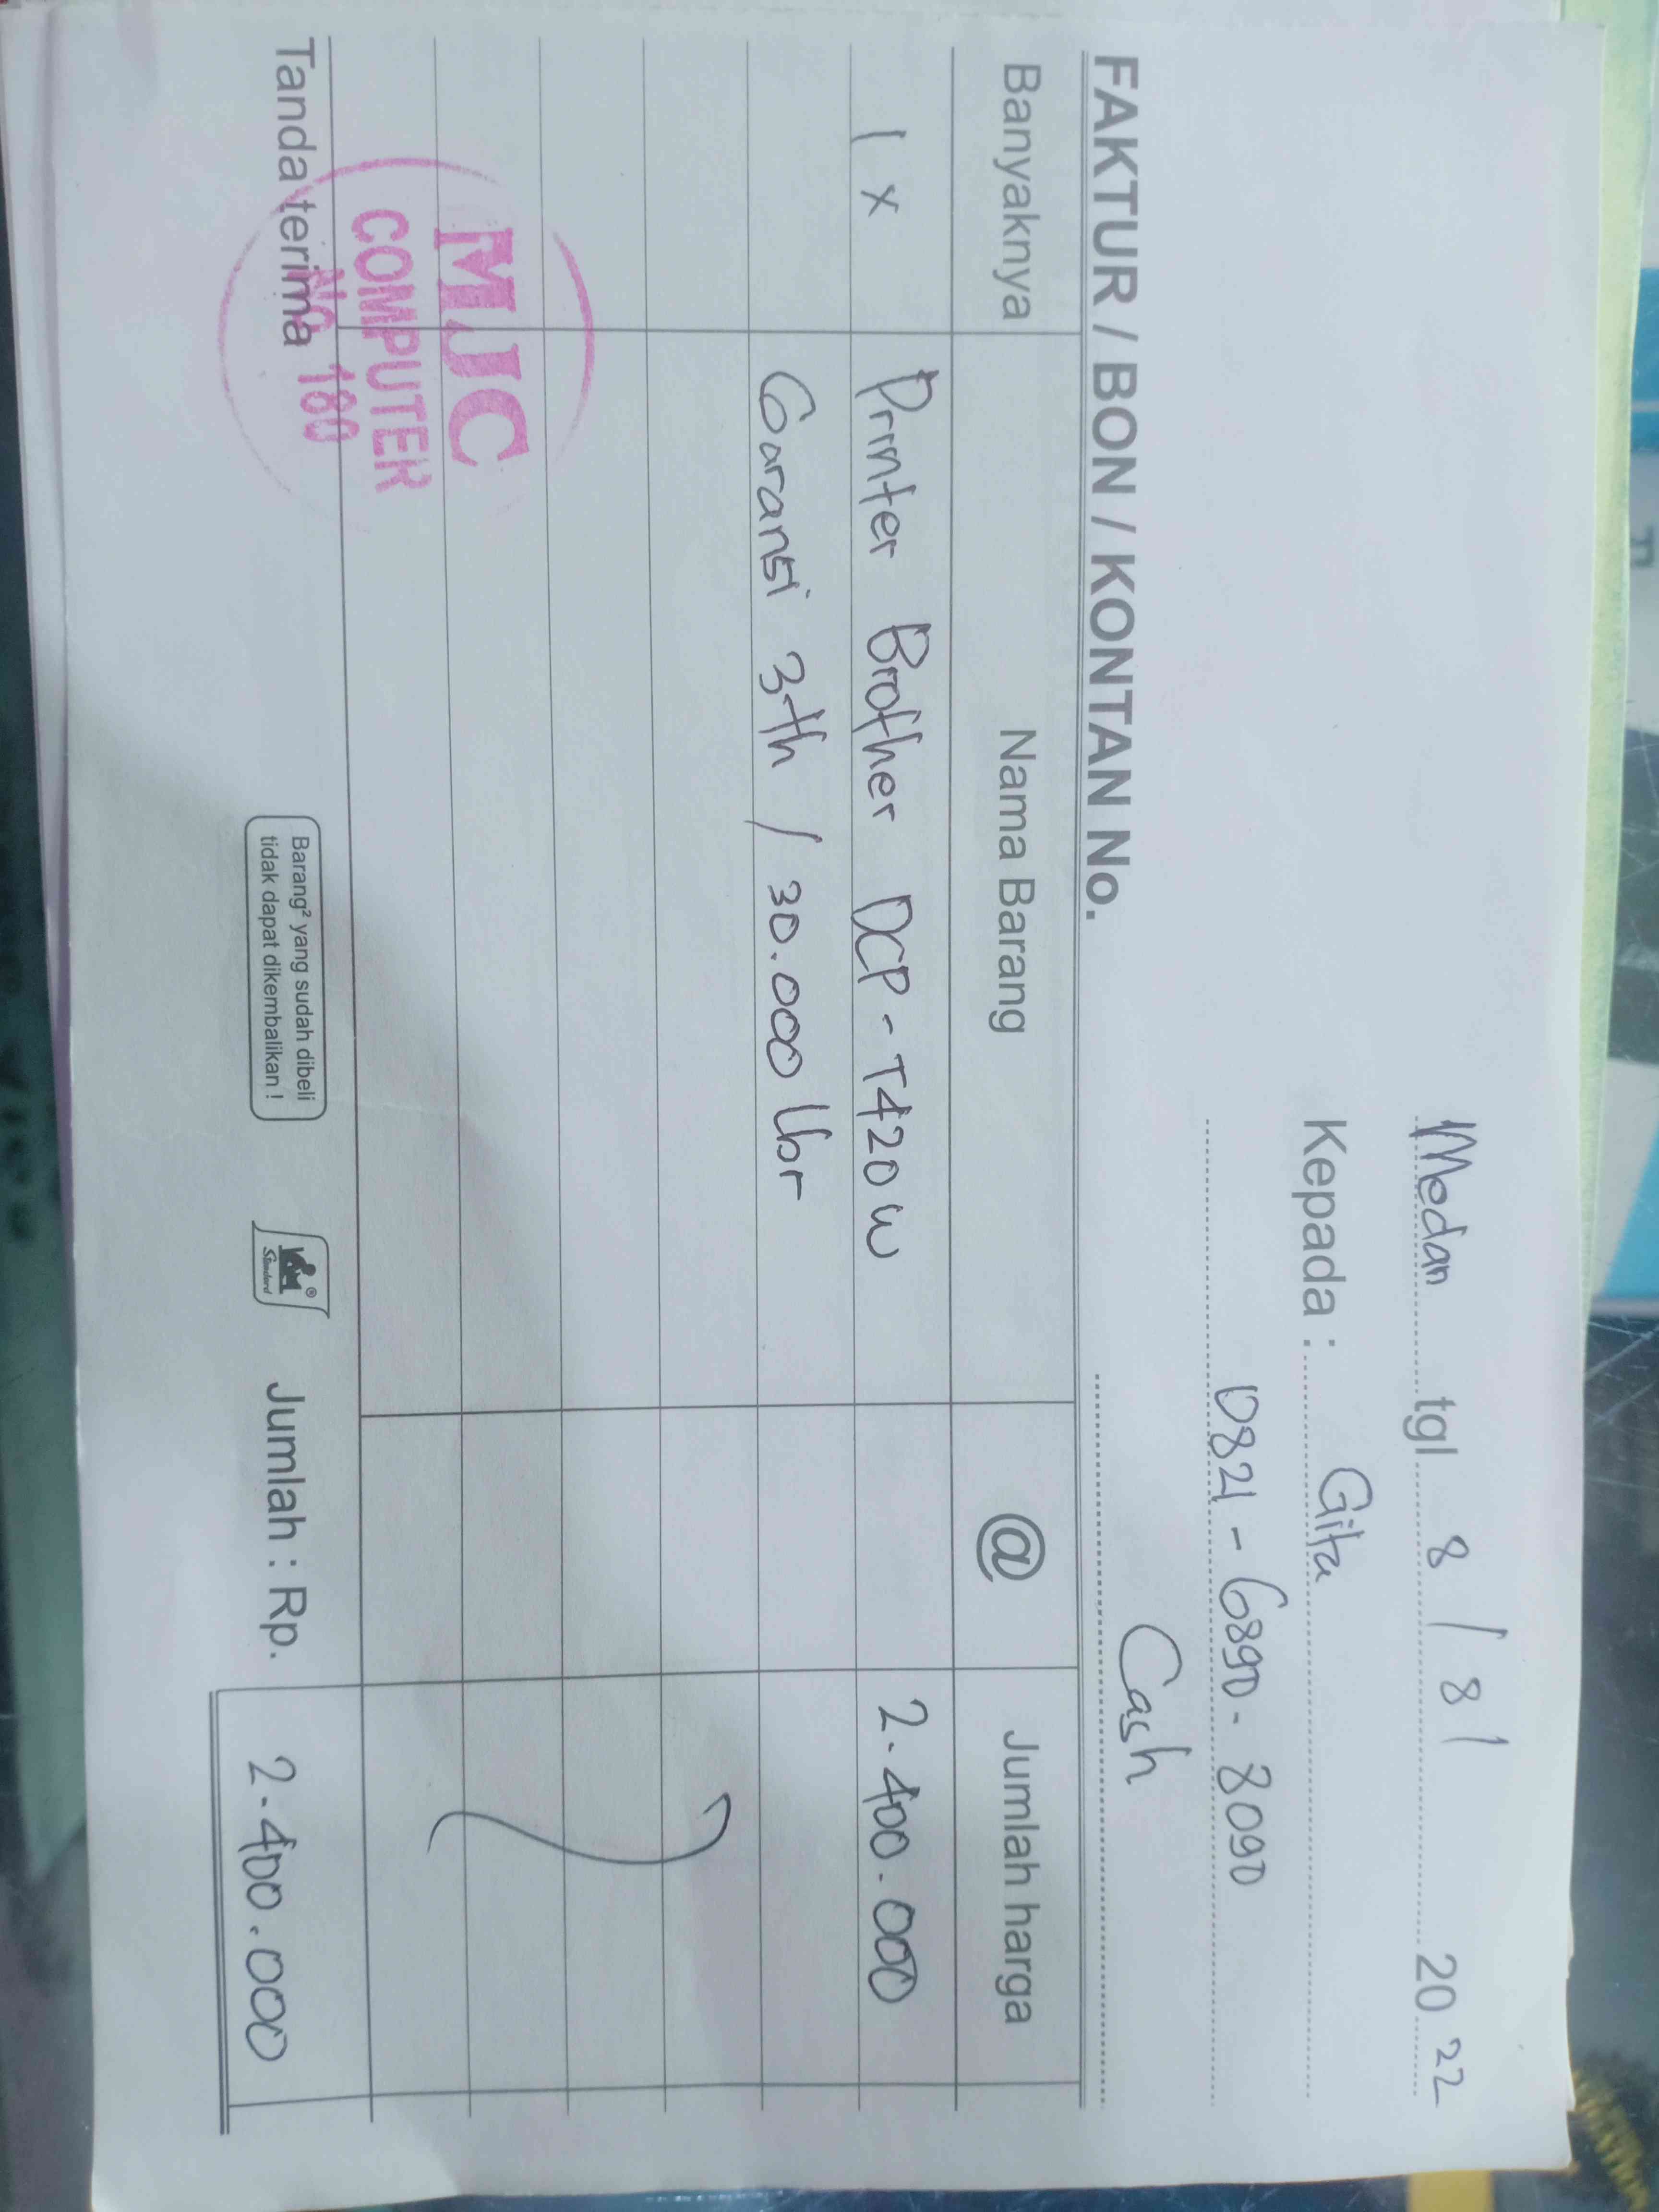 Medan tgl 8 / 8 / 20 22
Kepada : Gita
0821 - 6890 - 8090
Cash
FAKTUR / BON / KONTAN No.
Banyaknya Nama Barang @ Jumlah harga
1 x Printer Brother DCP - T420 W 2.400.000
Garansi 3th / 30.000 lbr
MJC
COMPUTER
NO 180
Tanda terima
Barang² yang sudah dibeli
tidak dapat dikembalikan !
Standard
Jumlah : Rp. 2.400.000